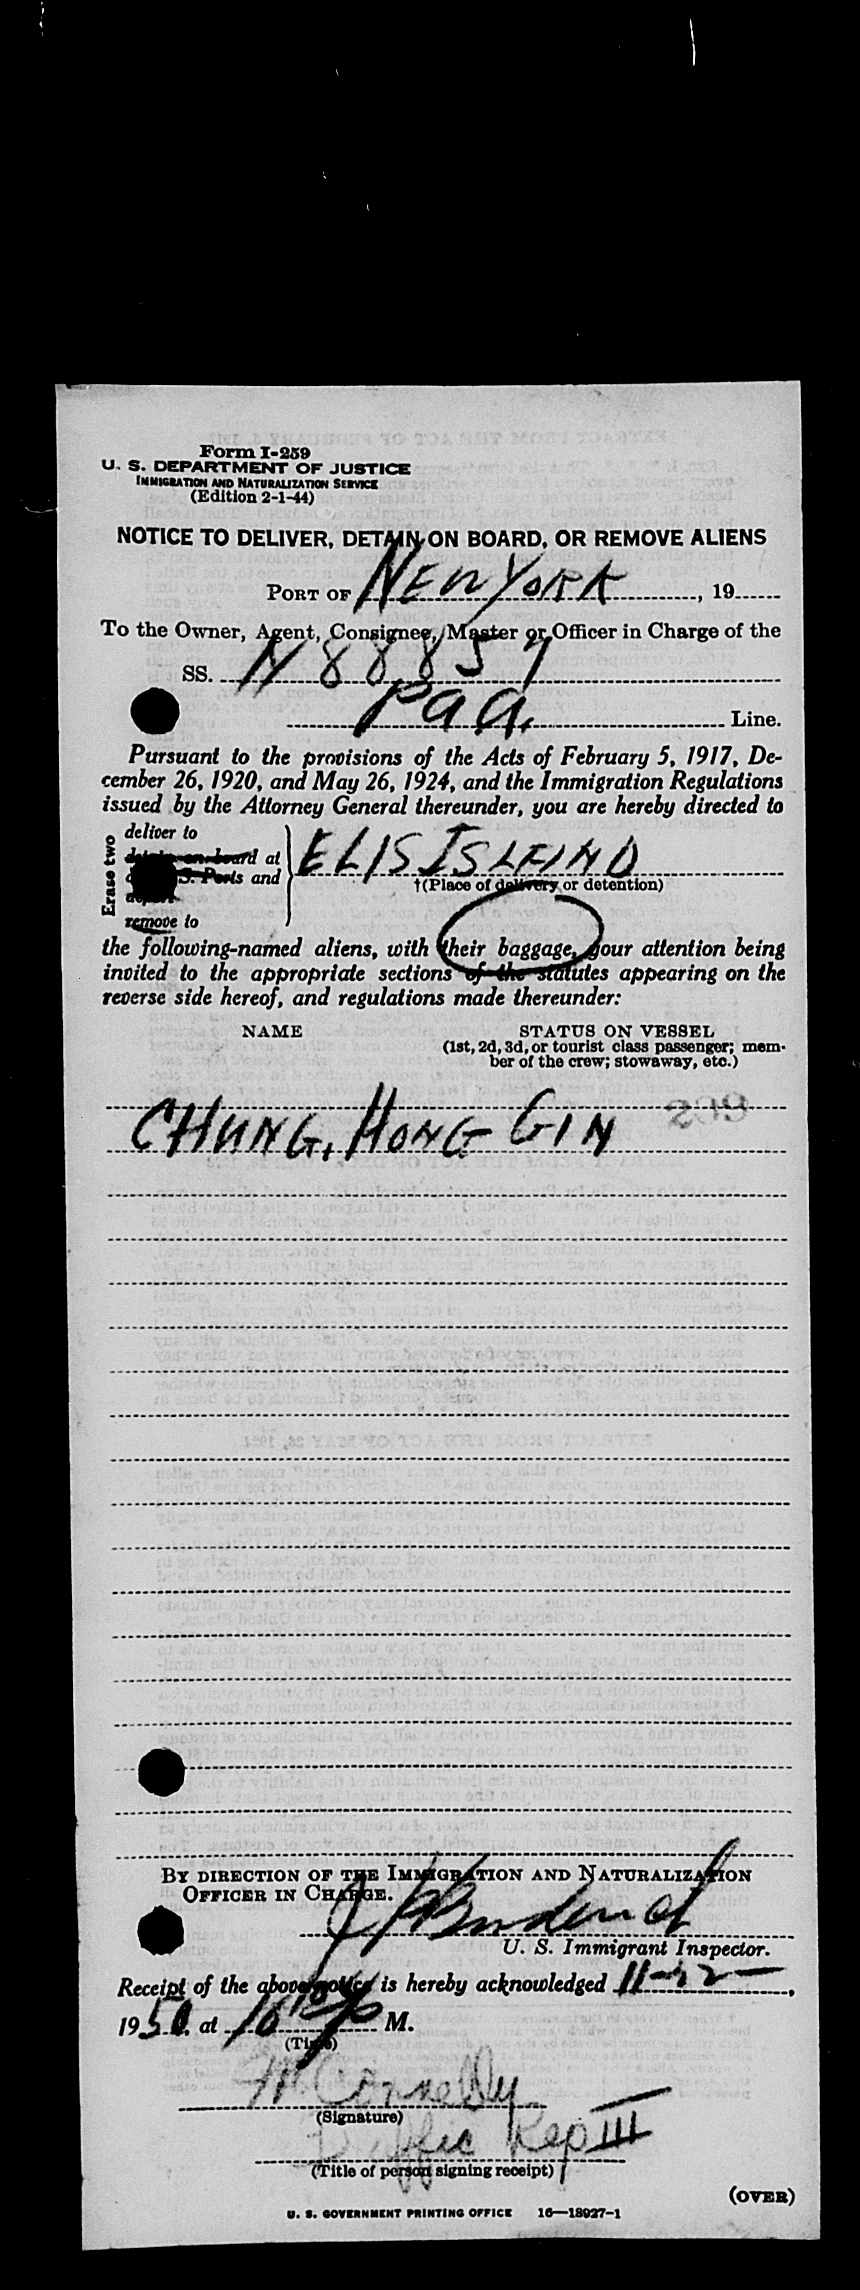 Form I-259
U. S. DEPARTMENT OF JUSTICE
IMMIGRATION AND NATURALIZATION SERVICE
(Edition 2-1-44)
NOTICE TO DELIVER, DETAIN ON BOARD, OR REMOVE ALIENS
PORT OF NEW YORK, 19
To the Owner, Agent, Consignee, Master or Officer in Charge of the
SS. N 88857
PAA. Line.
Pursuant to the provisions of the Acts of February 5, 1917, De-
cember 26, 1920, and May 26, 1924, and the Immigration Regulations
issued by the Attorney General thereunder, you are hereby directed to
Erase two
deliver to
detain on board at
S. Ports and
remove to
ELIS ISLAND
†(Place of delivery or detention)
the following-named aliens, with their baggage, your attention being
invited to the appropriate sections of the statutes appearing on the
reverse side hereof, and regulations made thereunder:
NAME STATUS ON VESSEL
(1st, 2d, 3d, or tourist class passenger; mem-
ber of the crew; stowaway, etc.)
CHUNG, HONG GIN 209
BY DIRECTION OF THE IMMIGRATION AND NATURALIZATION
OFFICER IN CHARGE.
U. S. Immigrant Inspector.
Receipt of the above notice is hereby acknowledged 11-22-,
1950. at M.
(Time)
Connelly
(Signature)
Traffic Rep III
(Title of person signing receipt)
(OVER)
U. S. GOVERNMENT PRINTING OFFICE 16—18927-1